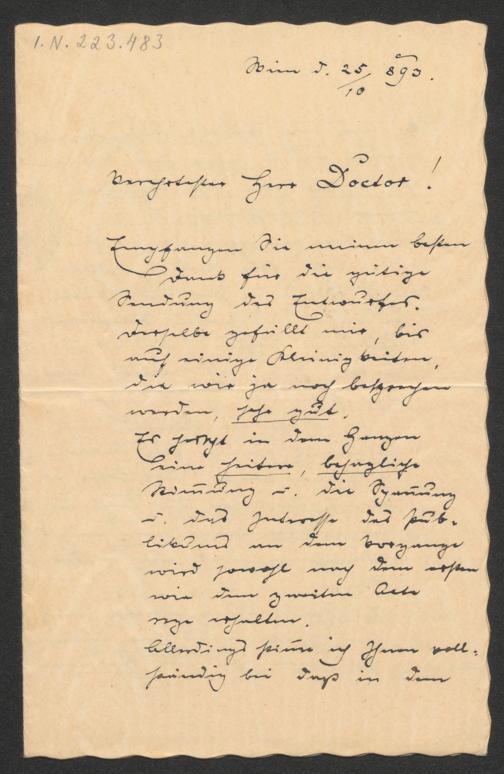 I. N. 223.483
Wien d. 25/10 893.
Verehrtester Herr Doctor!
Empfangen Sie meinen besten
Dank für die gütige
Sendung des Entwurfes.
Derselbe gefällt mir, bis
auf einige Kleinigkeiten,
die wir ja noch besprechen
werden, sehr gut.
Es herrscht in dem Ganzen
eine heitere, behagliche
Stimmung u. die Spannung
u. das Interesse des Pub-
likums an dem Vorgange
wird sowohl nach dem ersten
wie dem zweiten Acte
rege erhalten.
Allerdings stimme ich Ihnen voll-
ständig bei daß in dem